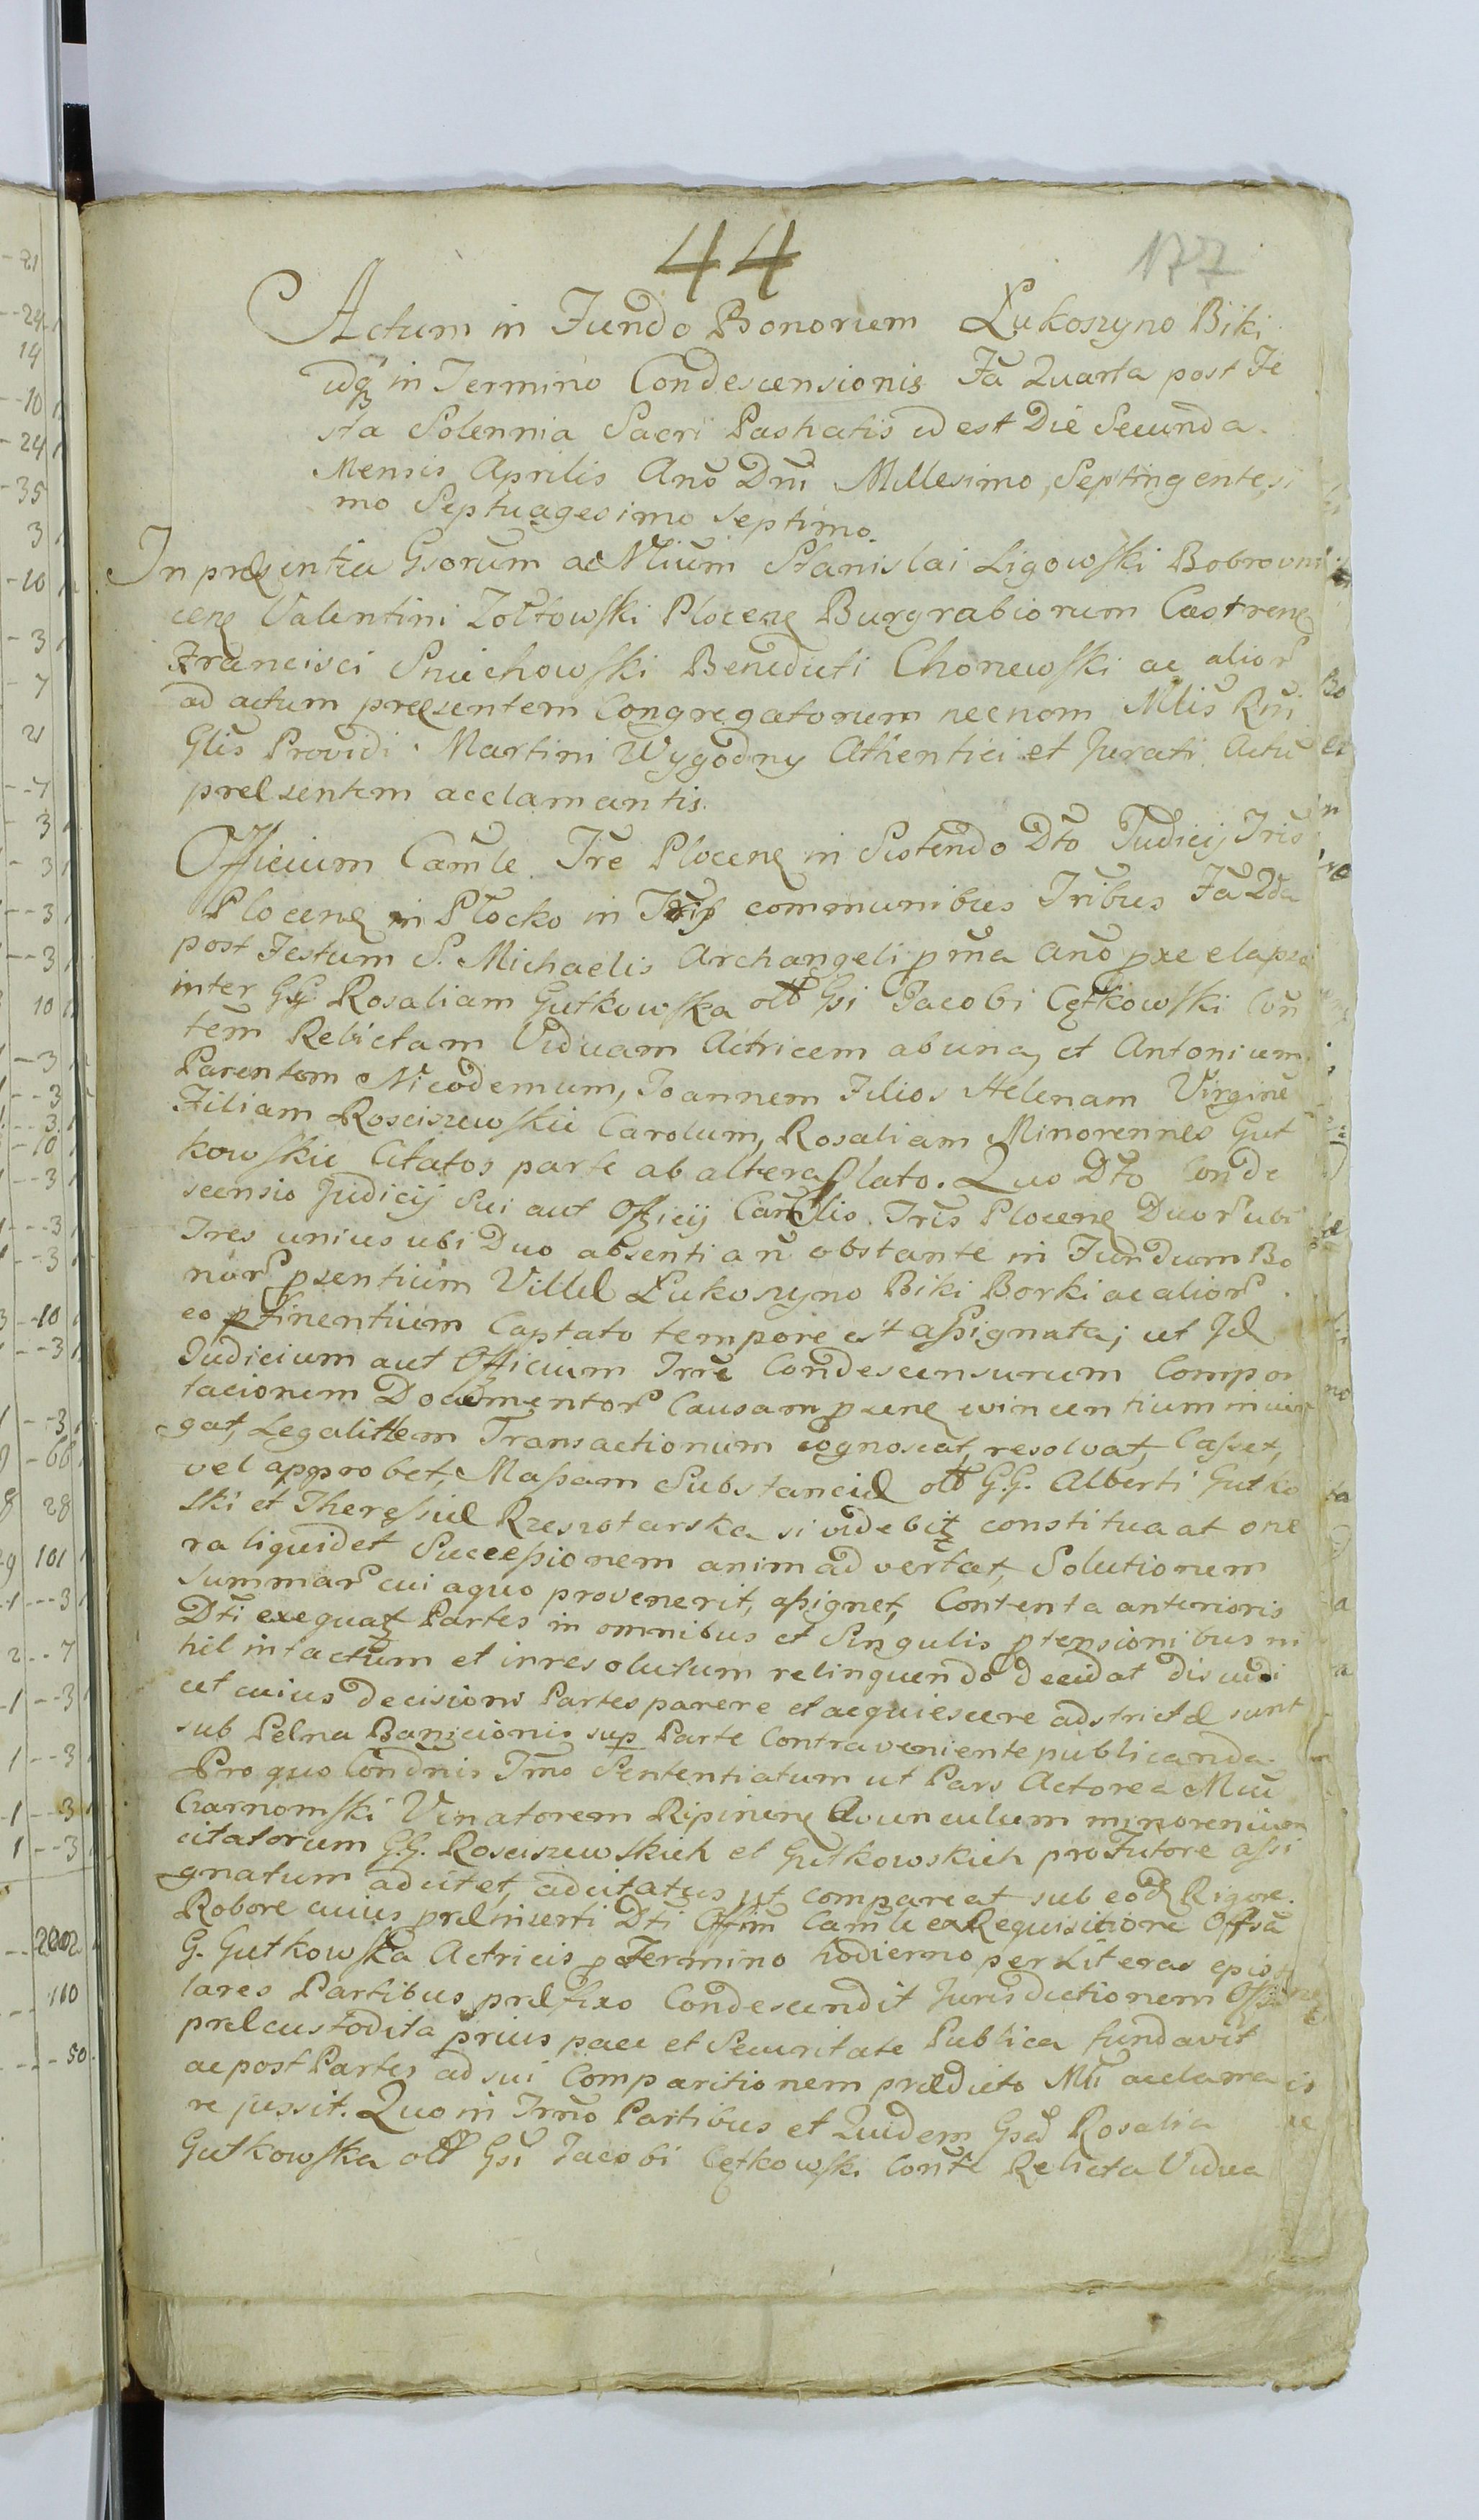 44
177
Actum in Fundo Bonorum Łukoszyno Biki
idq in Termino Condescensionis Fa Quarta post Fe
sta Solennia Sacri Paschatis id est Die Secunda
Mensis Aprilis Ano Dni Millesimo Septingentesi
mo Septuagesimo Septimo.
In præsentia Gsorum ac Nlium Stanislai Ligowski Bobrovni
cen Valentini Zołtowski Plocen Burgrabiorum Castren
Francisci Sniechowski Benedicti Chonewski ac alior
ad actum præsentem Congregatorum necnom Mlis Rni
Glis Providi Martini Wygodny Athentici et Jurati Actu
præsentem acclamantis.
Officium Camle Tre Plocen in Sistendo Dto Judicij Tris
Plocen in Płocko in Tris communibus Tribus Fa 2da
post Festum S. Michaelis Archangeli pma Ano pxe elapso
inter GG Rosaliam Gutkowska olb Gsi Jacobi Cętkowski Con
tem Relictam Viduam Actricem ab una, et Antonium
Parentem Nicodemum, Joannem Filios Helenam Virgine
Filiam Rosciszewskie Carolum, Rosaliam Minorennes Gut
kowskie Citatos parte ab altera lato. Quo Dto Conde
scensio Judicij Sui aut Officij Camlis Tris Plocen Duor ubi
Tres unius ubi Duo absentia n obstante in Fundum Bo
nor psentium Villæ Łukoszyno Biki Borki ac alior
eo ptinentium Captato tempore est assignata; ut Id
Judicium aut Officium Trre Condescensurum Compor
tacionem Documentor Causam psene evincentium iniun
gat, Legalittem Transactionum cognoscat, resolvat, Casset,
vel approbet, Massam Substanciæ olb G.G. Alberti Gutko
ski et Theressiæ Rzeszotarska si videbit constituaat one
ra liquidet Successionem animadvertat, Solutionem
Summar cui aquo provenerit, assignet, Contenta anterioris
Dti exequat Partes in omnibus et Singulis ptensionibus ni
hil intactum et inresolutum relinquendo decidat
et cuius decisioni Partes parere et acquiescere adstrictæ sunt
sub Pelna Banicionis sup Parte Contraveniente publicanda.
Pro quo Condnis Tmo Sententiatum ut Pars Actorea
Czarnomski Venatorem Ripinen Avunculum minorenium
citatorum G.G. Rosciszewskich et Gutkowskich pro Tutore assi
gnatum adcitet, adcitatus ut compareat sub eod Rigore.
Robore cuius præinserti Dti Offm Camle ex Requisitione Offsa
G. Gutkowska Actricis p Termino hodierno per Literas episto
lares Partibus præfixo Condescendit Jurisdictionem
præcustodita prius pace et Securitate Publica fundavit
ac post Partes ad sui Comparitionem prædicto Mli acclama
re jussit. Quo in Trmo Partibus et Quidem Gsa Rosalia
Gutkowska olb Gsi Jacobi Cętkowski Conte Relicta Vidua